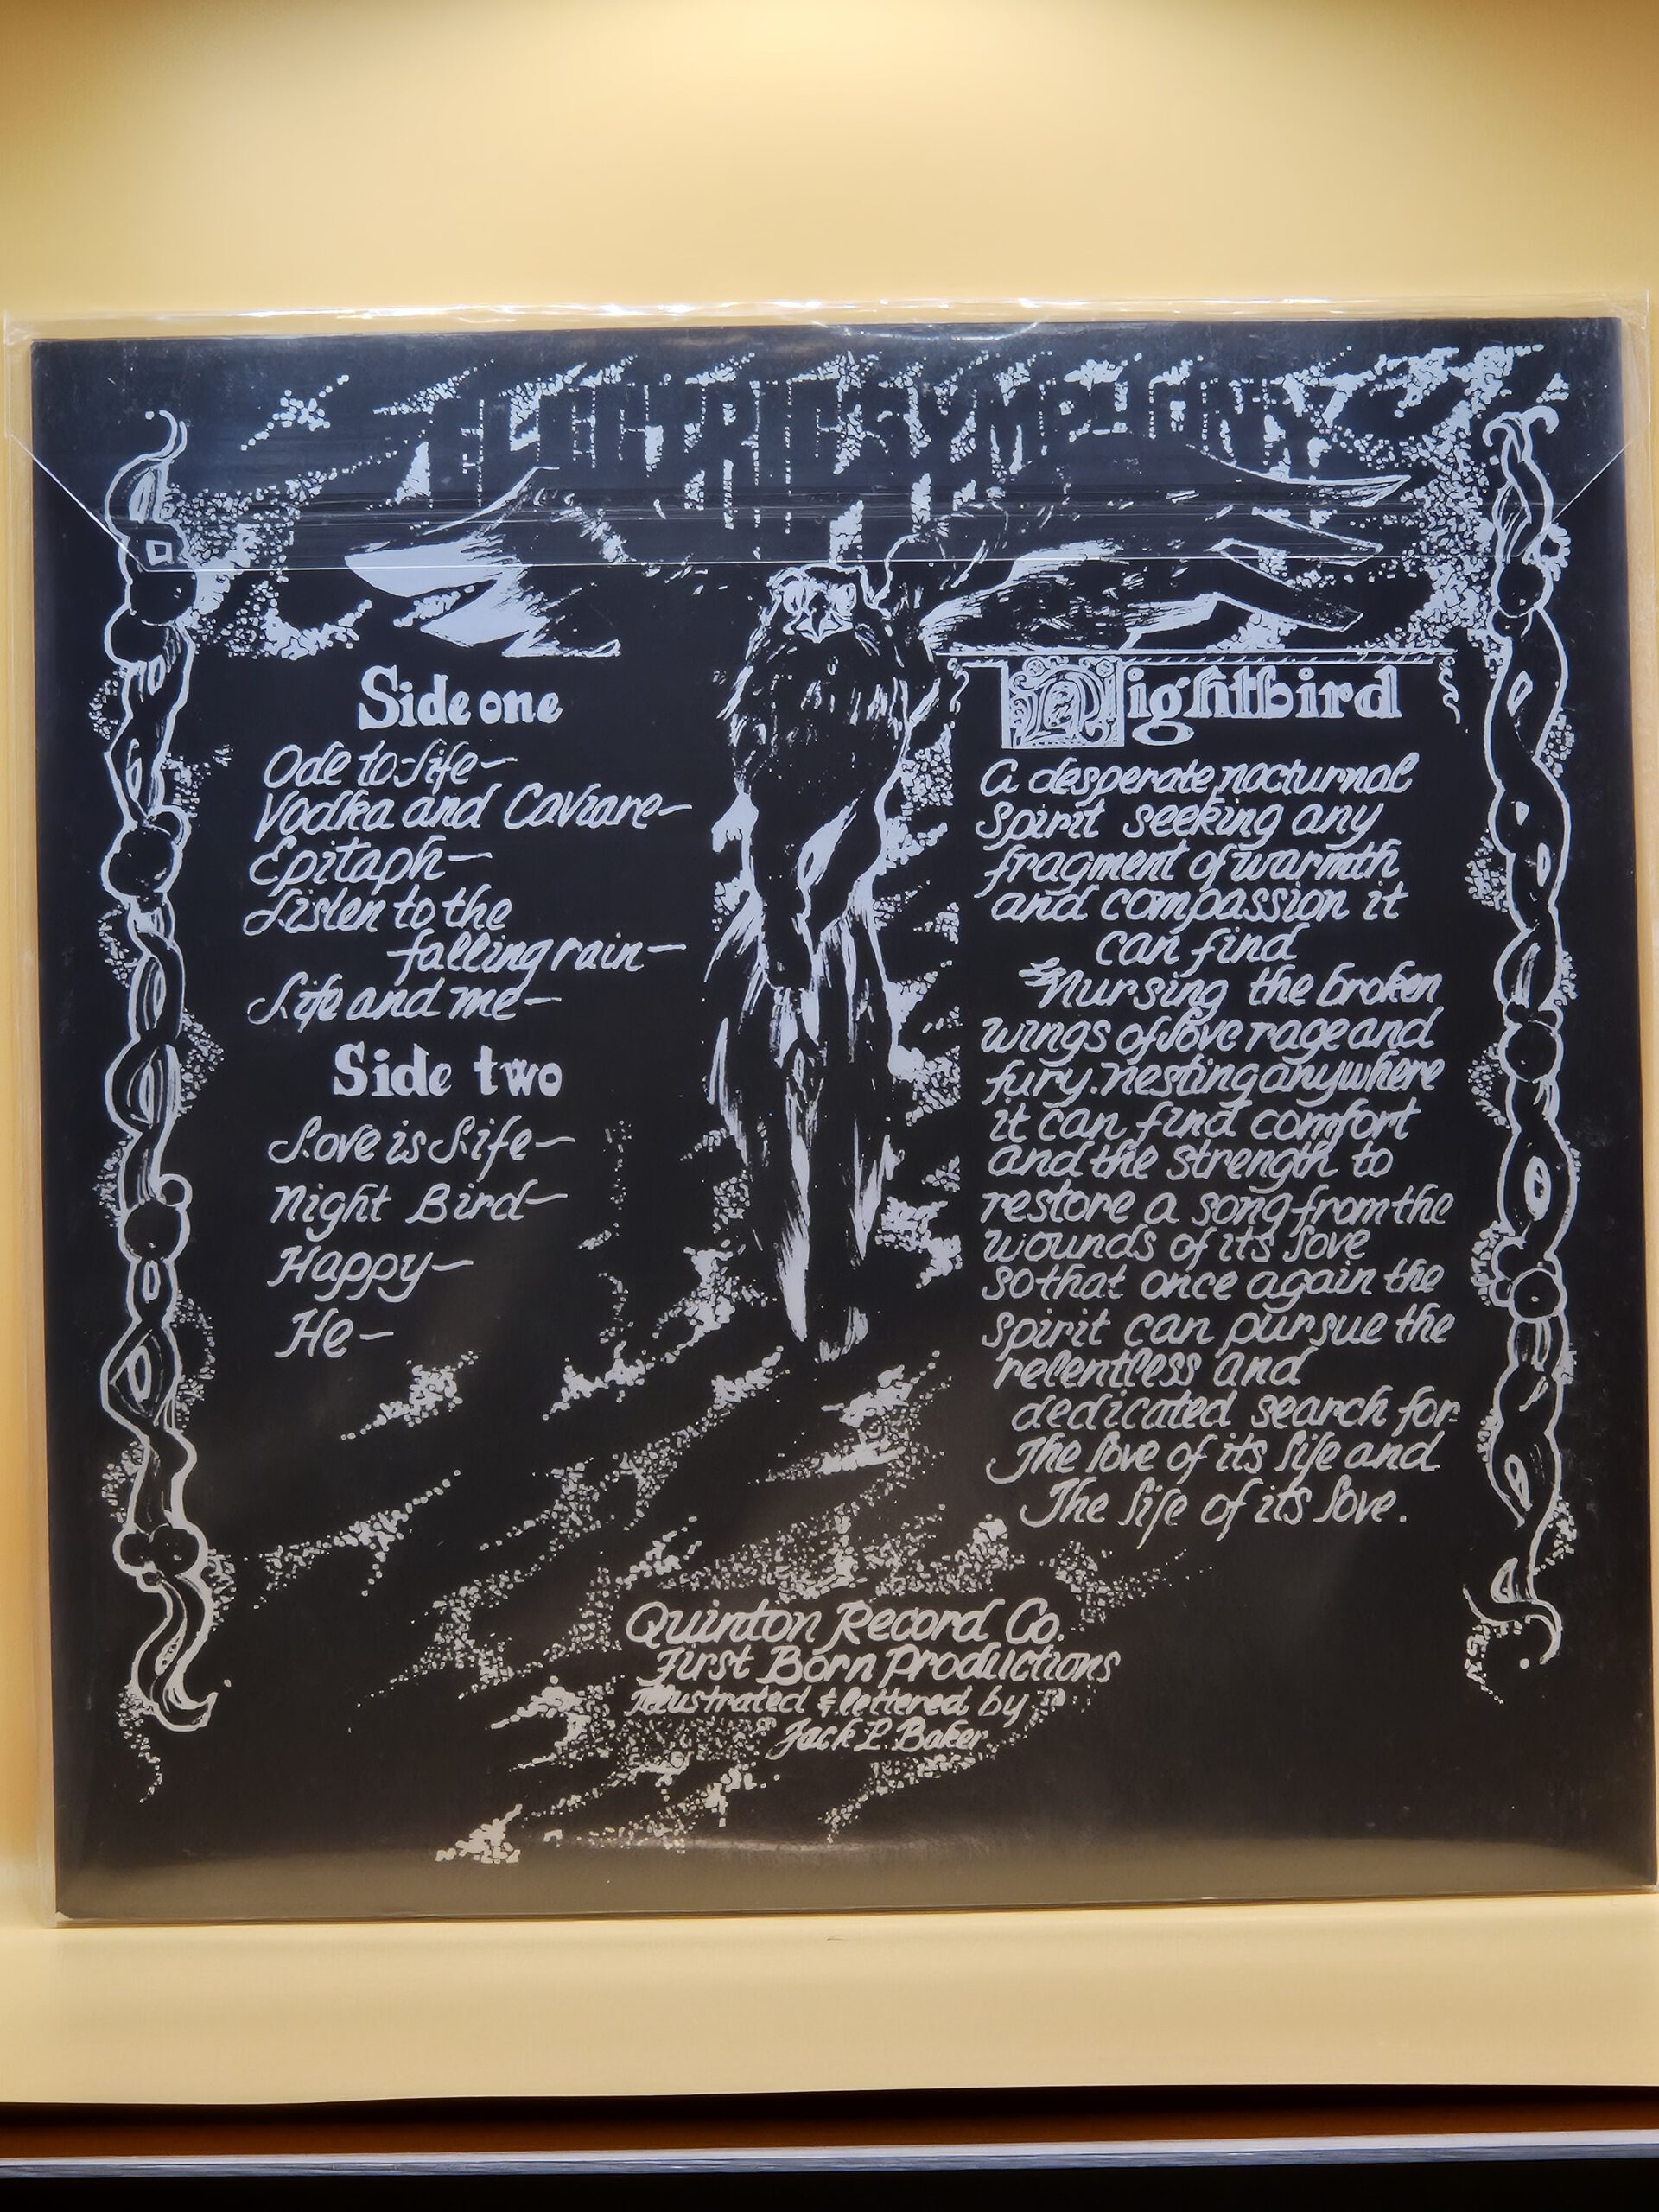 ELECTRIC SYMPHONY
Side one
Ode to Life—
Vodka and Caviare—
Epitaph—
Listen to the
falling rain—
Life and me—
Side two
Love is Life—
Night Bird—
Happy—
He—
Nightbird
A desperate nocturnal
Spirit seeking any
fragment of warmth
and compassion it
can find
Nursing the broken
wings of love rage and
fury. nesting anywhere
it can find comfort
and the strength to
restore a song from the
wounds of its love
so that once again the
spirit can pursue the
relentless and
dedicated search for
The love of its life and
The life of its love.
Quinton Record Co.
First Born Productions
Illustrated & lettered by
Jack L. Baker